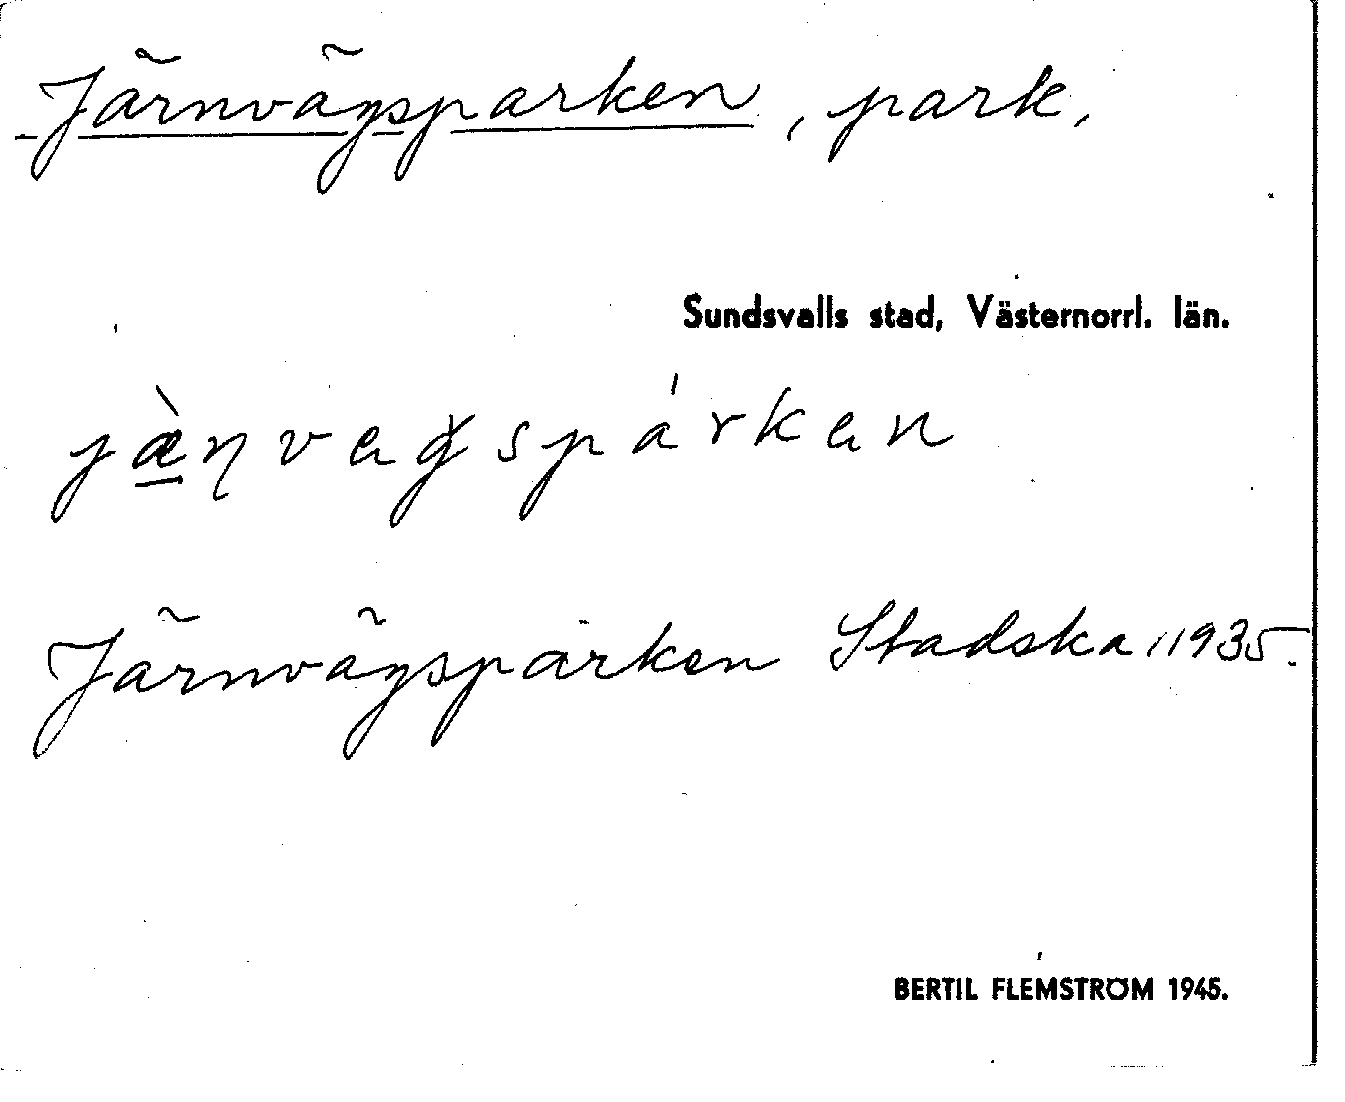 Järnvägsparken, park,
Sundsvalls stad, Västernorrl. län.
jæ̀ɳvegspárken
Järnvägsparken Stadska 1935.
BERTIL FLEMSTRÖM 1945.